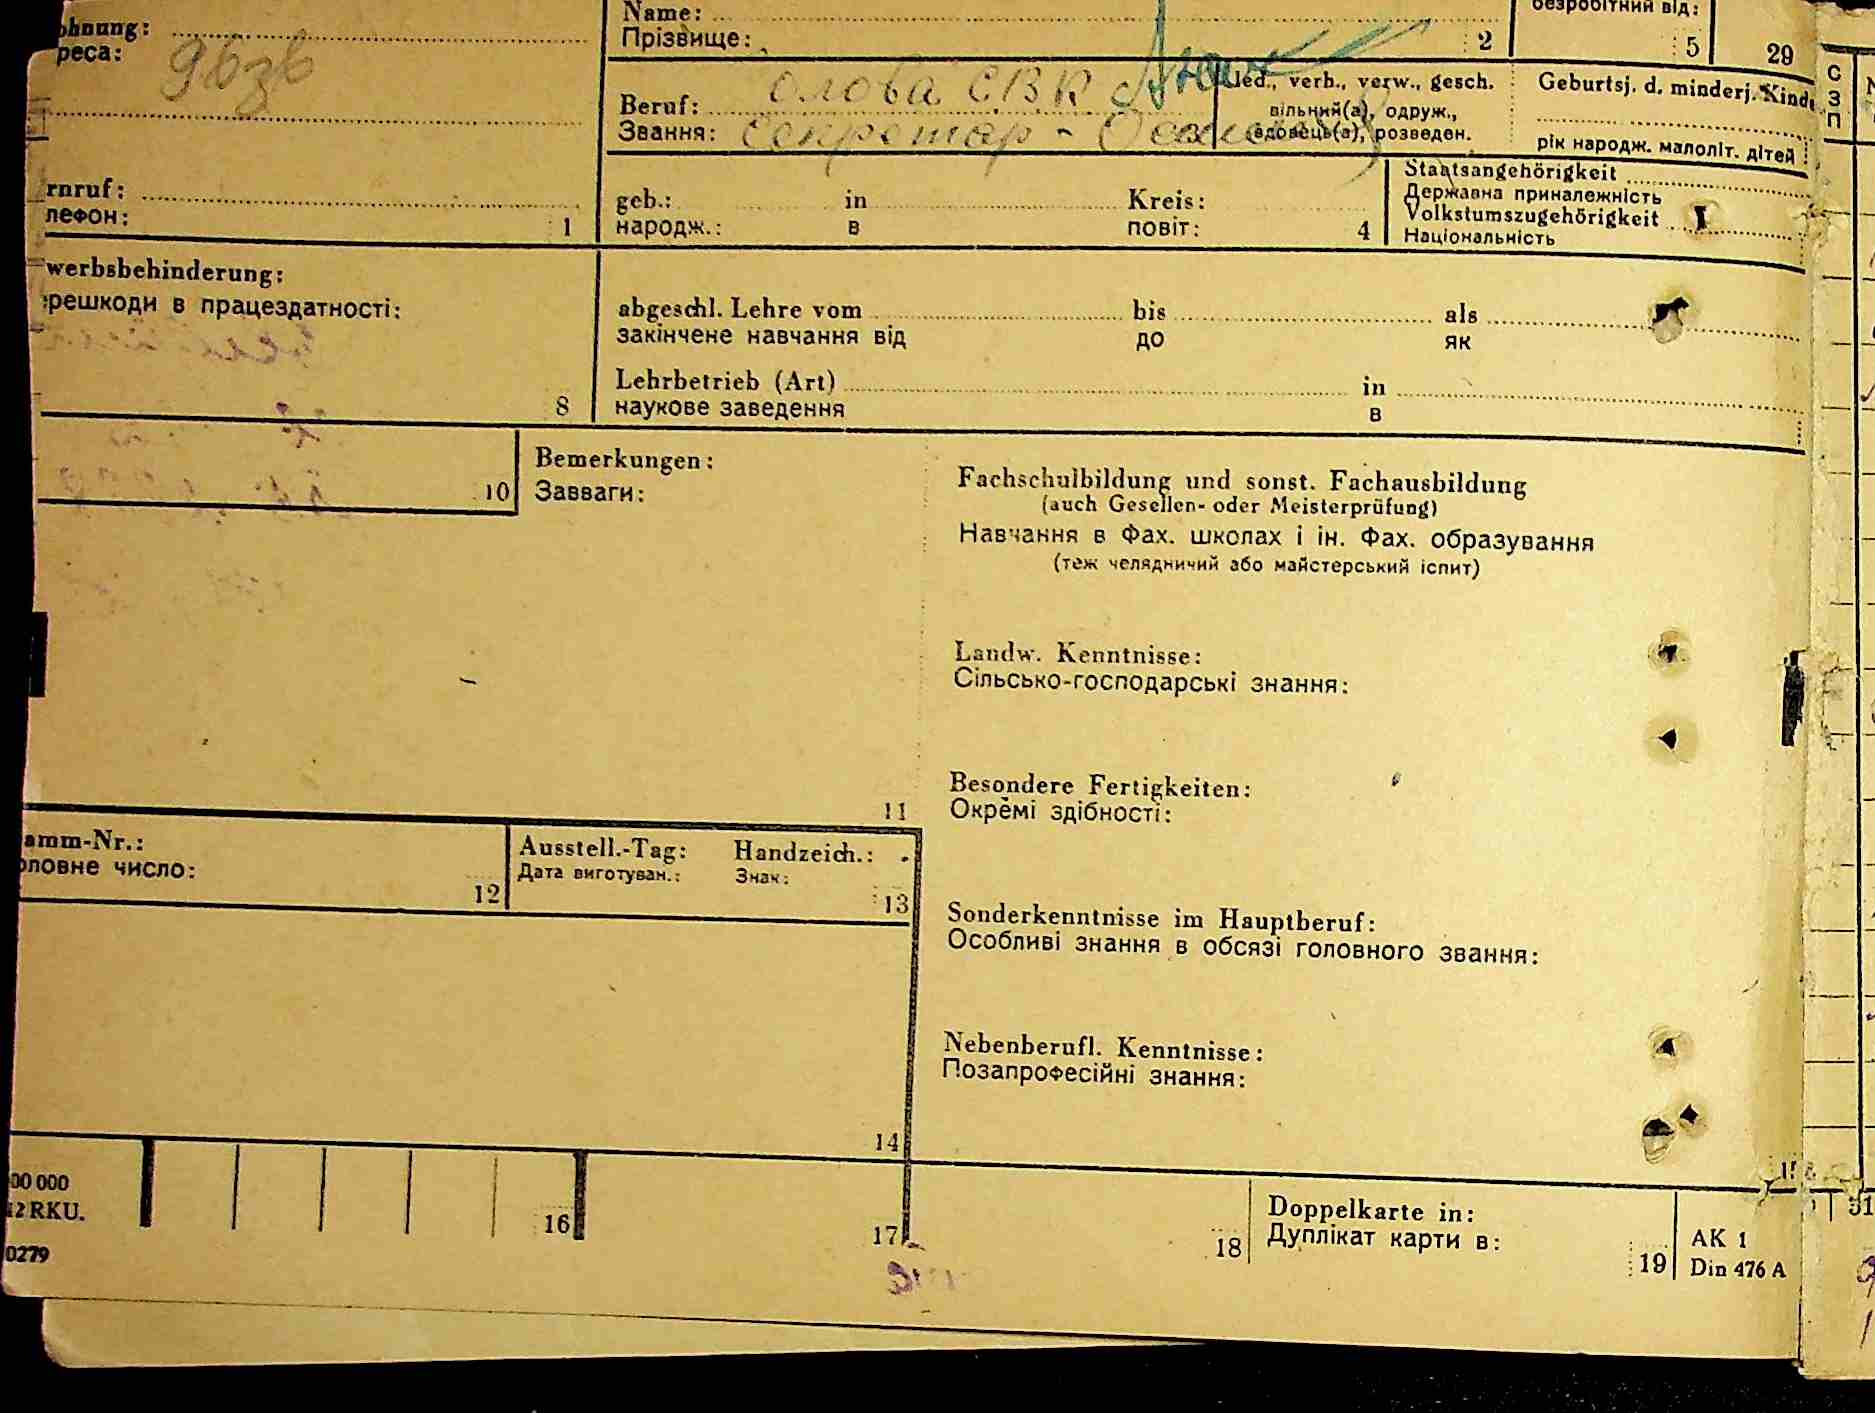 Name:
безробітний від:
Прізвище:
2
5
29
реса:
Beruf:
олова СВК
led., verh., verw., gesch.
Geburtsj. d. minderj. Kind
С
З
П
Звання:
Секретар -
вільний(а), одруж.,
вдовець(а), розведен.
рік народж. малоліт. дітей
rnruf:
лефон:
1
geb.:
in
Kreis:
народж.:
в
повіт:
4
Staatsangehörigkeit
Державна приналежність
Volkstumszugehörigkeit
Національність
werbsbehinderung:
решкоди в працездатності:
8
abgeschl. Lehre vom
bis
als
закінчене навчання від
до
як
Lehrbetrieb (Art)
in
наукове заведення
в
10
Bemerkungen:
Завваги:
11
Fachschulbildung und sonst. Fachausbildung
(auch Gesellen- oder Meisterprüfung)
Навчання в Фах. школах і ін. Фах. образування
(теж челядничий або майстерський іспит)
Landw. Kenntnisse:
Сільсько-господарські знання:
Besondere Fertigkeiten:
Окремі здібності:
amm-Nr.:
оловне число:
12
Ausstell.-Tag:
Handzeich.:
Дата виготуван.:
Знак:
13
Sonderkenntnisse im Hauptberuf:
Особливі знання в обсязі головного звання:
Nebenberufl. Kenntnisse:
Позапрофесійні знання:
14
00 000
12 RKU.
0279
16
17
18
Doppelkarte in:
Дуплікат карти в:
19
AK 1
Din 476 A
31